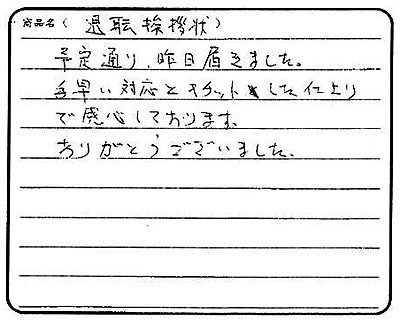 商品名（ 退職挨拶状 ）
予定通り、昨日届きました。
手早い対応とキチットした仕上り
で感心しております。
ありがとうございました。